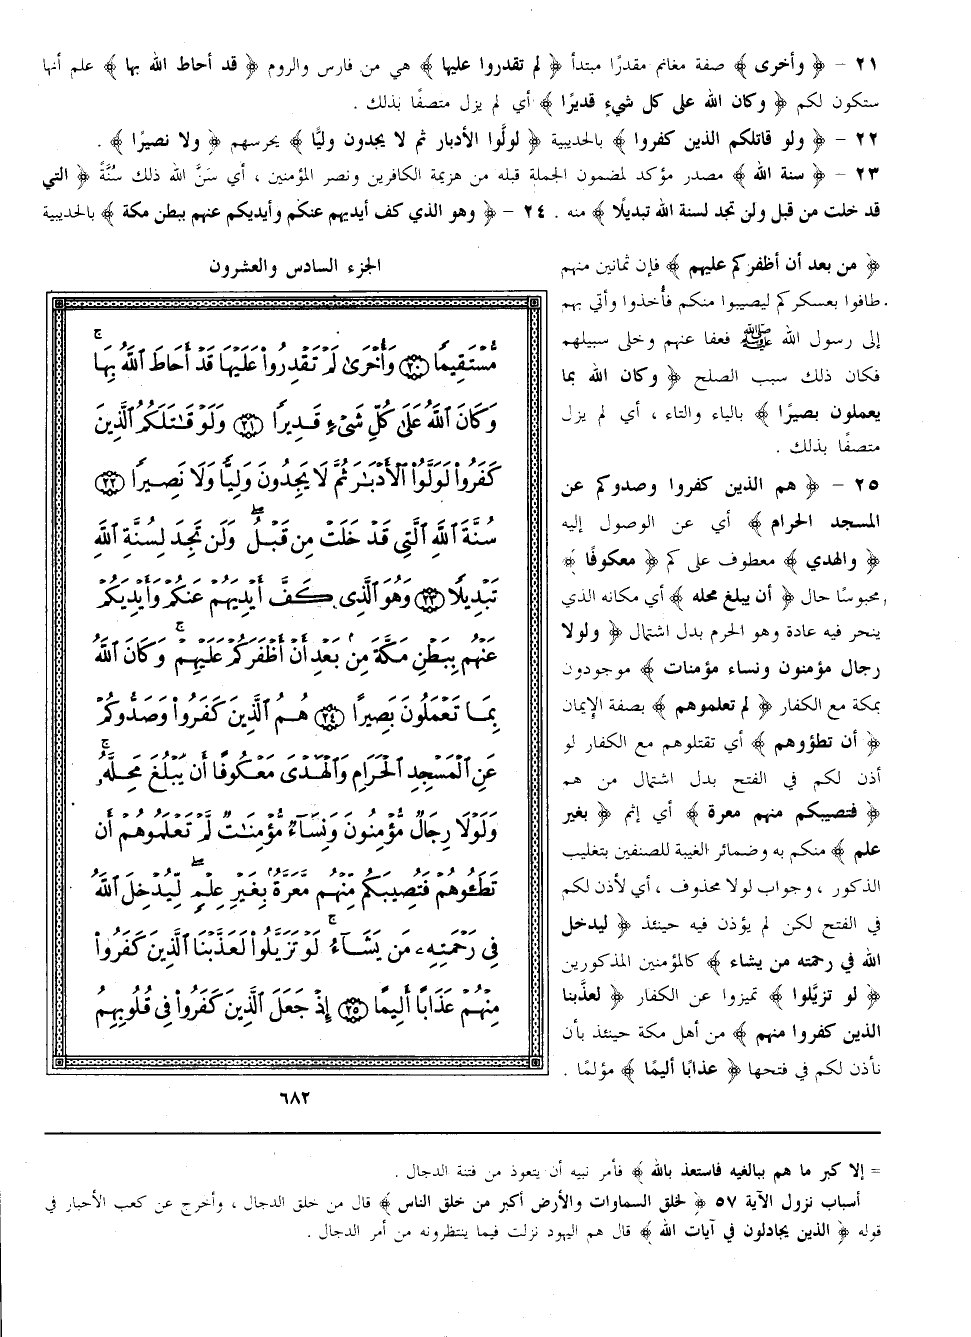 ٢١ - ﴿ وأخرى ﴾ صفة مغانم مقدرًا مبتدأ ﴿ لم تقدروا عليها ﴾ هي من فارس والروم ﴿ قد أحاط الله بها ﴾ علم أنها
ستكون لكم ﴿ وكان الله على كل شيءٍ قديرًا ﴾ أي لم يزل متصفًا بذلك .
٢٢ - ﴿ ولو قاتلكم الذين كفروا ﴾ بالحديبية ﴿ لولَّوا الأدبار ثم لا يجدون وليًّا ﴾ يحرسهم ﴿ ولا نصيرًا ﴾ .
٢٣ - ﴿ سنة الله ﴾ مصدر مؤكد لمضمون الجملة قبله من هزيمة الكافرين ونصر المؤمنين ، أي سَنَّ الله ذلك سُنَّةً ﴿ التي
قد خلت من قبل ولن تجد لسنة الله تبديلًا ﴾ منه . ٢٤ - ﴿ وهو الذي كف أيديهم عنكم وأيديكم عنهم ببطن مكة ﴾ بالحديبية
﴿ من بعد أن أظفركم عليهم ﴾ فإن ثمانين منهم
طافوا بعسكركم ليصيبوا منكم فأخذوا وأتي بهم
إلى رسول الله ﷺ فعفا عنهم وخلى سبيلهم
فكان ذلك سبب الصلح ﴿ وكان الله بما
يعملون بصيرًا ﴾ بالياء والتاء ، أي لم يزل
متصفًا بذلك .
٢٥ - ﴿ هم الذين كفروا وصدوكم عن
المسجد الحرام ﴾ أي عن الوصول إليه
﴿ والهدي ﴾ معطوف على كم ﴿ معكوفًا ﴾
محبوسًا حال ﴿ أن يبلغ محله ﴾ أي مكانه الذي
ينحر فيه عادة وهو الحرم بدل اشتمال ﴿ ولولا
رجال مؤمنون ونساء مؤمنات ﴾ موجودون
بمكة مع الكفار ﴿ لم تعلموهم ﴾ بصفة الإيمان
﴿ أن تطؤوهم ﴾ أي تقتلوهم مع الكفار لو
أذن لكم في الفتح بدل اشتمال من هم
﴿ فتصيبكم منهم معرة ﴾ أي إثم ﴿ بغير
علم ﴾ منكم به وضمائر الغيبة للصنفين بتغليب
الذكور ، وجواب لولا محذوف ، أي لأذن لكم
في الفتح لكن لم يؤذن فيه حينئذ ﴿ ليدخل
الله في رحمته من يشاء ﴾ كالمؤمنين المذكورين
﴿ لو تزيَّلوا ﴾ تميزوا عن الكفار ﴿ لعذَّبنا
الذين كفروا منهم ﴾ من أهل مكة حينئذ بأن
نأذن لكم في فتحها ﴿ عذابًا أليمًا ﴾ مؤلمًا .
الجزء السادس والعشرون
مُّسْتَقِيمًا ٢٠ وَأُخْرَىٰ لَمْ تَقْدِرُوا۟ عَلَيْهَا قَدْ أَحَاطَ ٱللَّهُ بِهَا ۚ
وَكَانَ ٱللَّهُ عَلَىٰ كُلِّ شَىْءٍ قَدِيرًا ٢١ وَلَوْ قَٰتَلَكُمُ ٱلَّذِينَ
كَفَرُوا۟ لَوَلَّوُا۟ ٱلْأَدْبَٰرَ ثُمَّ لَا يَجِدُونَ وَلِيًّا وَلَا نَصِيرًا ٢٢
سُنَّةَ ٱللَّهِ ٱلَّتِى قَدْ خَلَتْ مِن قَبْلُ ۖ وَلَن تَجِدَ لِسُنَّةِ ٱللَّهِ
تَبْدِيلًا ٢٣ وَهُوَ ٱلَّذِى كَفَّ أَيْدِيَهُمْ عَنكُمْ وَأَيْدِيَكُمْ
عَنْهُم بِبَطْنِ مَكَّةَ مِنۢ بَعْدِ أَنْ أَظْفَرَكُمْ عَلَيْهِمْ ۚ وَكَانَ ٱللَّهُ
بِمَا تَعْمَلُونَ بَصِيرًا ٢٤ هُمُ ٱلَّذِينَ كَفَرُوا۟ وَصَدُّوكُمْ
عَنِ ٱلْمَسْجِدِ ٱلْحَرَامِ وَٱلْهَدْىَ مَعْكُوفًا أَن يَبْلُغَ مَحِلَّهُۥ ۚ
وَلَوْلَا رِجَالٌ مُّؤْمِنُونَ وَنِسَآءٌ مُّؤْمِنَٰتٌ لَّمْ تَعْلَمُوهُمْ أَن
تَطَـُٔوهُمْ فَتُصِيبَكُم مِّنْهُم مَّعَرَّةٌۢ بِغَيْرِ عِلْمٍ ۖ لِّيُدْخِلَ ٱللَّهُ
فِى رَحْمَتِهِۦ مَن يَشَآءُ ۚ لَوْ تَزَيَّلُوا۟ لَعَذَّبْنَا ٱلَّذِينَ كَفَرُوا۟
مِنْهُمْ عَذَابًا أَلِيمًا ٢٥ إِذْ جَعَلَ ٱلَّذِينَ كَفَرُوا۟ فِى قُلُوبِهِمُ
٦٨٢
= إلا كبر ما هم ببالغيه فاستعذ بالله ﴾ فأمر نبيه أن يتعوذ من فتنة الدجال .
أسباب نزول الآية ٥٧ ﴿ لخلق السماوات والأرض أكبر من خلق الناس ﴾ قال من خلق الدجال ، وأخرج عن كعب الأحبار في
قوله ﴿ الذين يجادلون في آيات الله ﴾ قال هم اليهود نزلت فيما ينتظرونه من أمر الدجال .